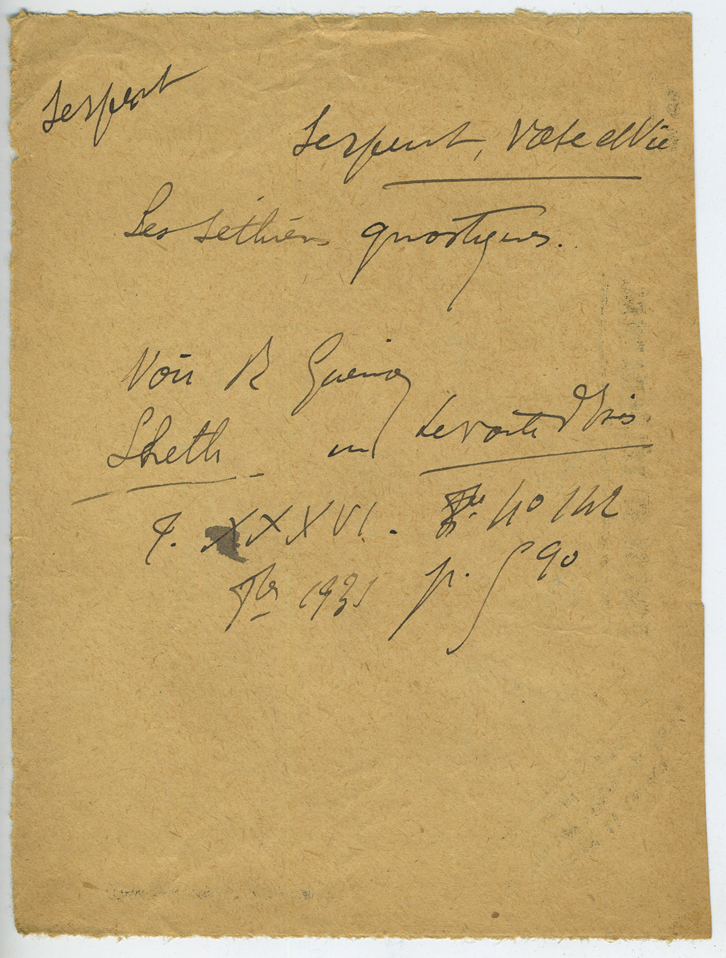 Serpent
Serpent, Vase de Vie
Les Séthiens gnostiques.
Voir R Guénon
Sheth in Le voile d'Isis
T. XXXVI. No 142
8bre 1931 p. 590